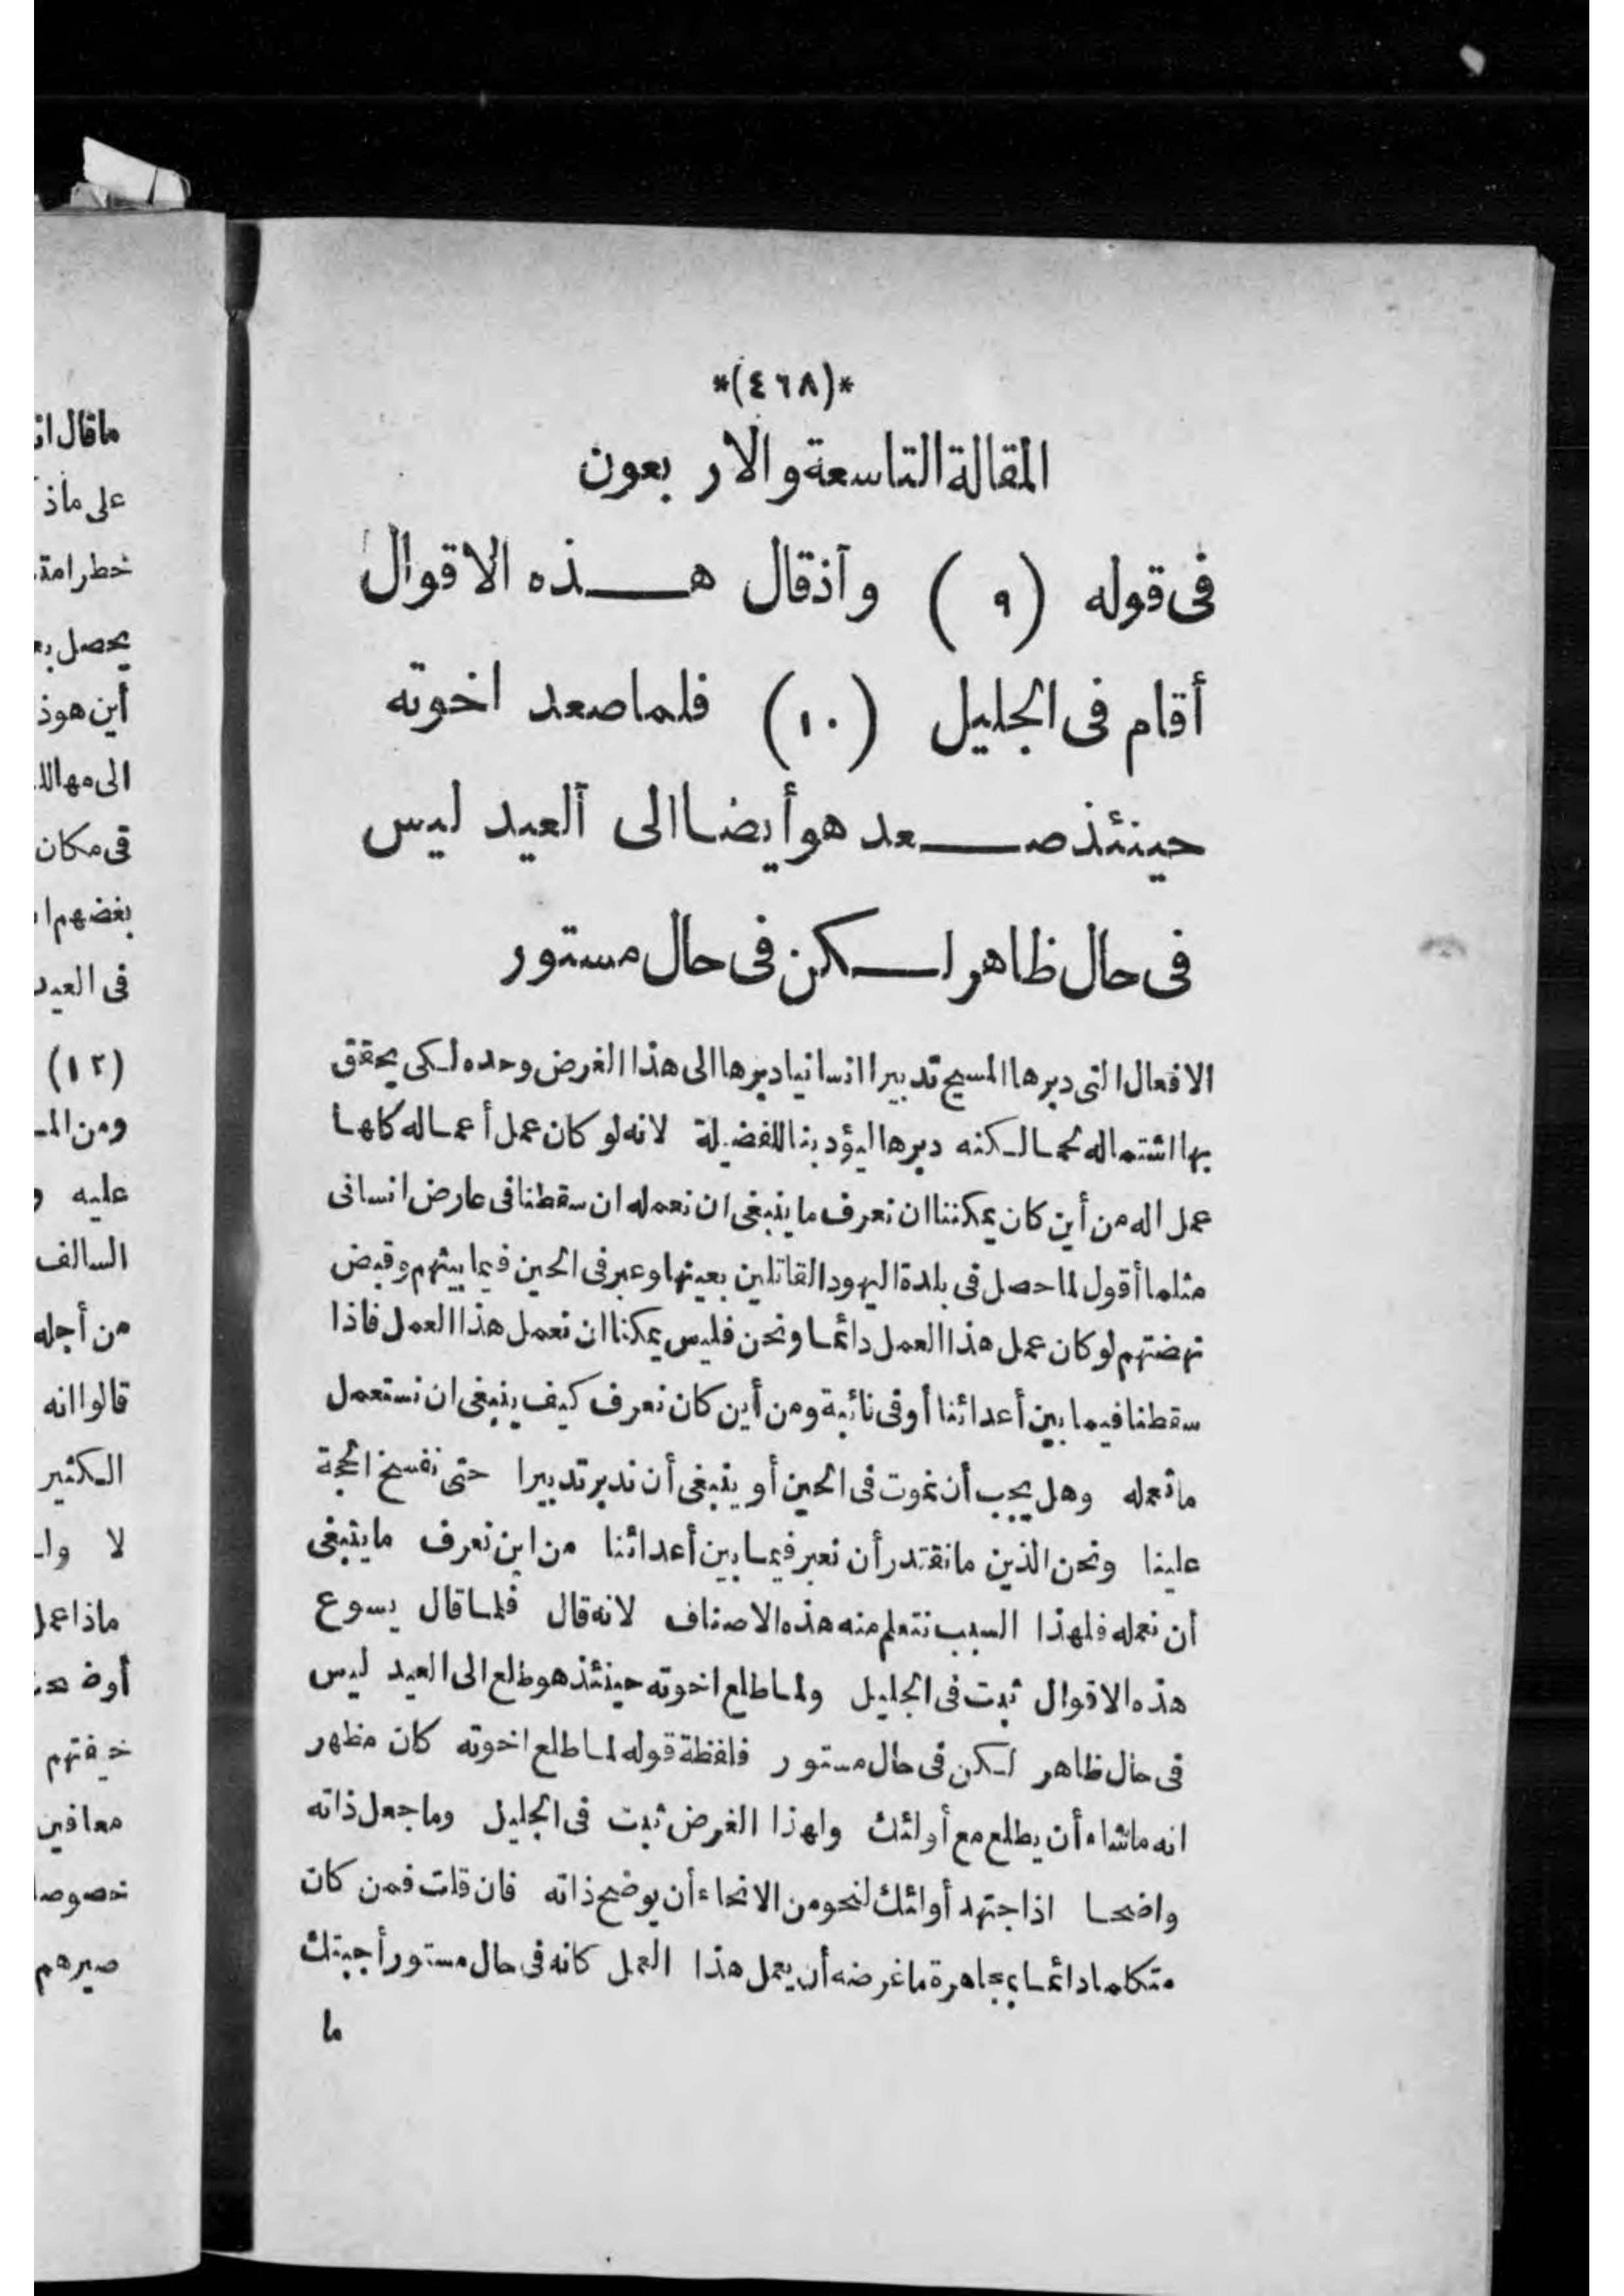 *(٤٦٨)*
المقالة التاسعة والاربعون
فى قوله (٩) واذ قال هذه الاقوال
أقام فى الجليل (١٠) فلما صعد اخوته
حينئذ صعد هو أيضا الى العيد ليس
فى حال ظاهر لكن فى حال مستور
الافعال التى دبرها المسيح تدبيرا انسانيا دبرها الى هذا الغرض وحده لكى يحقق
بها اشتماله لحما لكنه دبرها ليؤدبنا للفضيلة لانه لو كان عمل أعماله كلها
عمل اله من أين كان يمكننا ان نعرف ما ينبغى ان نعمله ان سقطنا فى عارض انسانى
مثلما أقول لما حصل فى بلدة اليهود القاتلين بعينها وعبر فى الحين فيما بينهم وقبض
نهضتهم لو كان عمل هذا العمل دائما ونحن فليس يمكننا ان نعمل هذا العمل فاذا
سقطنا فيما بين أعدائنا أو فى نائبة ومن أين كان نعرف كيف ينبغى ان نستعمل
ما نعمله وهل يجب أن نموت فى الحين أو ينبغى أن ندبر تدبيرا حتى نفسخ الحجة
علينا ونحن الذين ما نقتدر أن نعبر فيما بين أعدائنا من اين نعرف ما ينبغى
أن نعمله فلهذا السبب نتعلم منه هذه الاصناف لانه قال فلما قال يسوع
هذه الاقوال ثبت فى الجليل ولما طلع اخوته حينئذ هو طلع الى العيد ليس
فى حال ظاهر لكن فى حال مستور فلفظة قوله لما طلع اخوته كان مظهر
انه ما شاء أن يطلع مع أولئك ولهذا الغرض ثبت فى الجليل وما جعل ذاته
واضحا اذا جتهد أولئك لنحو من الانحاء أن يوضح ذاته فان قلت فمن كان
متكلما دائما بمجاهرة ما غرضه أن يعمل هذا العمل كانه فى حال مستور أجبتك
ما
ما قال
على ماذ
خطرا
يحصل
أين هوذ
الى مهالك
فى مكان
بغضهم
فى العيد
(١٢)
ومن
عليه
السالف
من أجله
قالوا انه
الكثير
لا
ماذا عمل
خيفتهم
معاقين
صيرهم